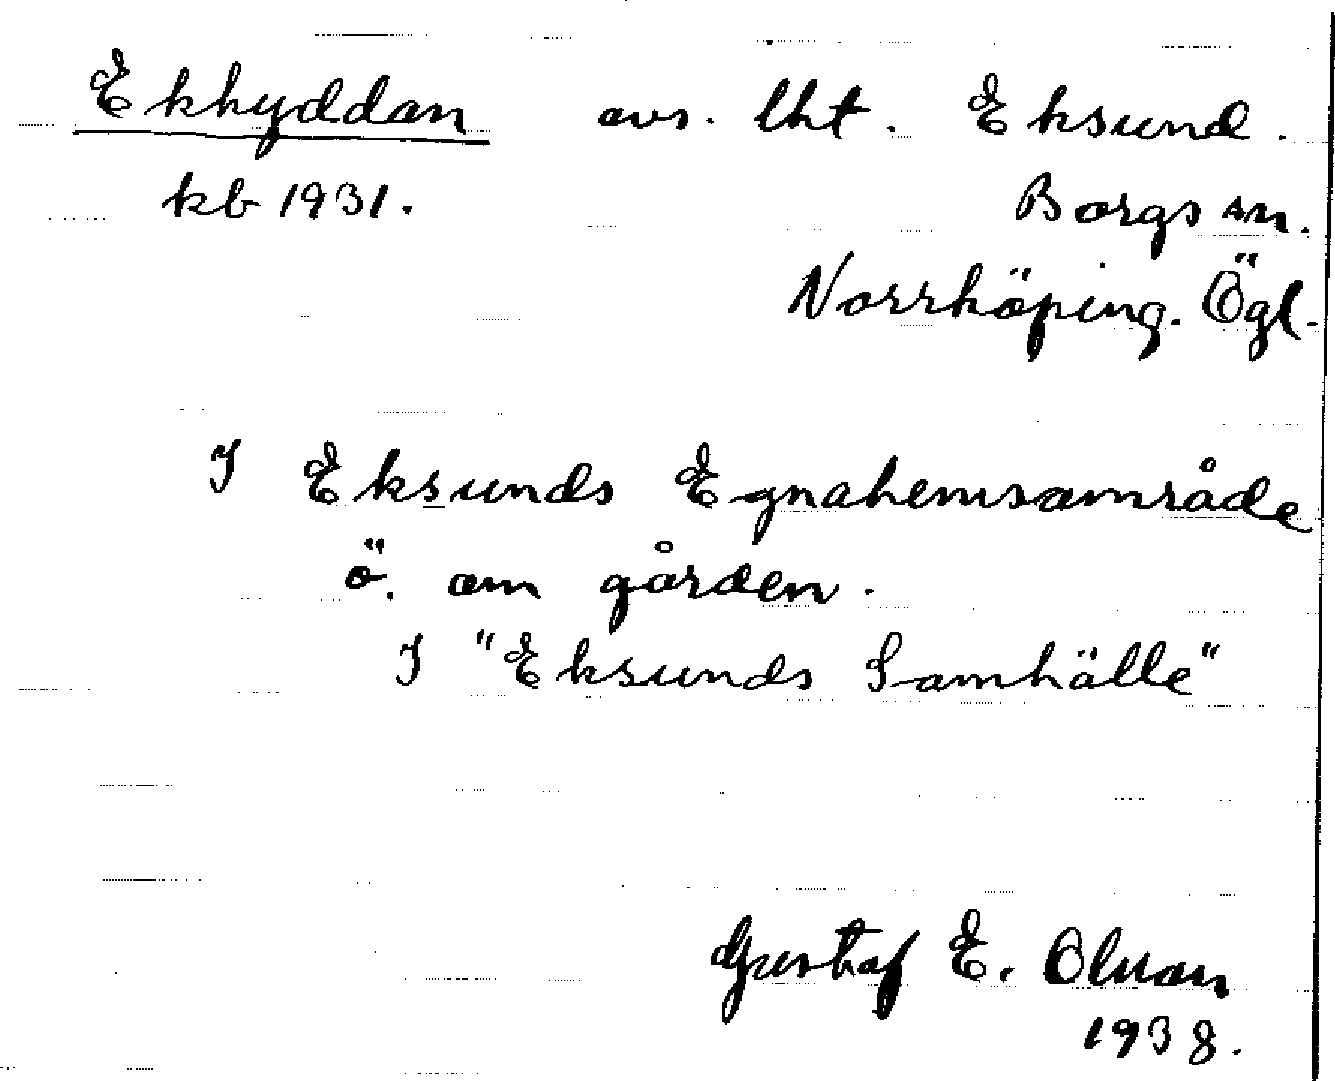 Ekhyddan avs. lht. Eksund.
kb 1931. Borgs sn.
Norrköping. Ögl.
I Eksunds Egnahemsområde
ö. om gården.
I "Eksunds Samhälle"
Gustaf E. Olson
1938.